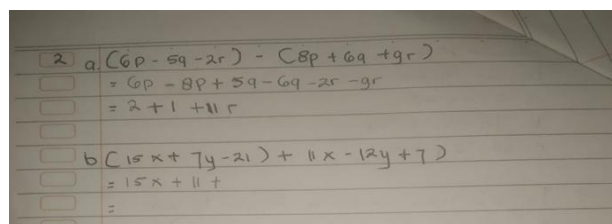 2 a. (6p - 5q - 2r) - (8p + 6q + 9r)
= 6p - 8p + 5q - 6q - 2r - 9r
= 2 + 1 + 11 r
b (15x + 7y - 21) + 11x - 12y + 7)
= 15x + 11 +
=